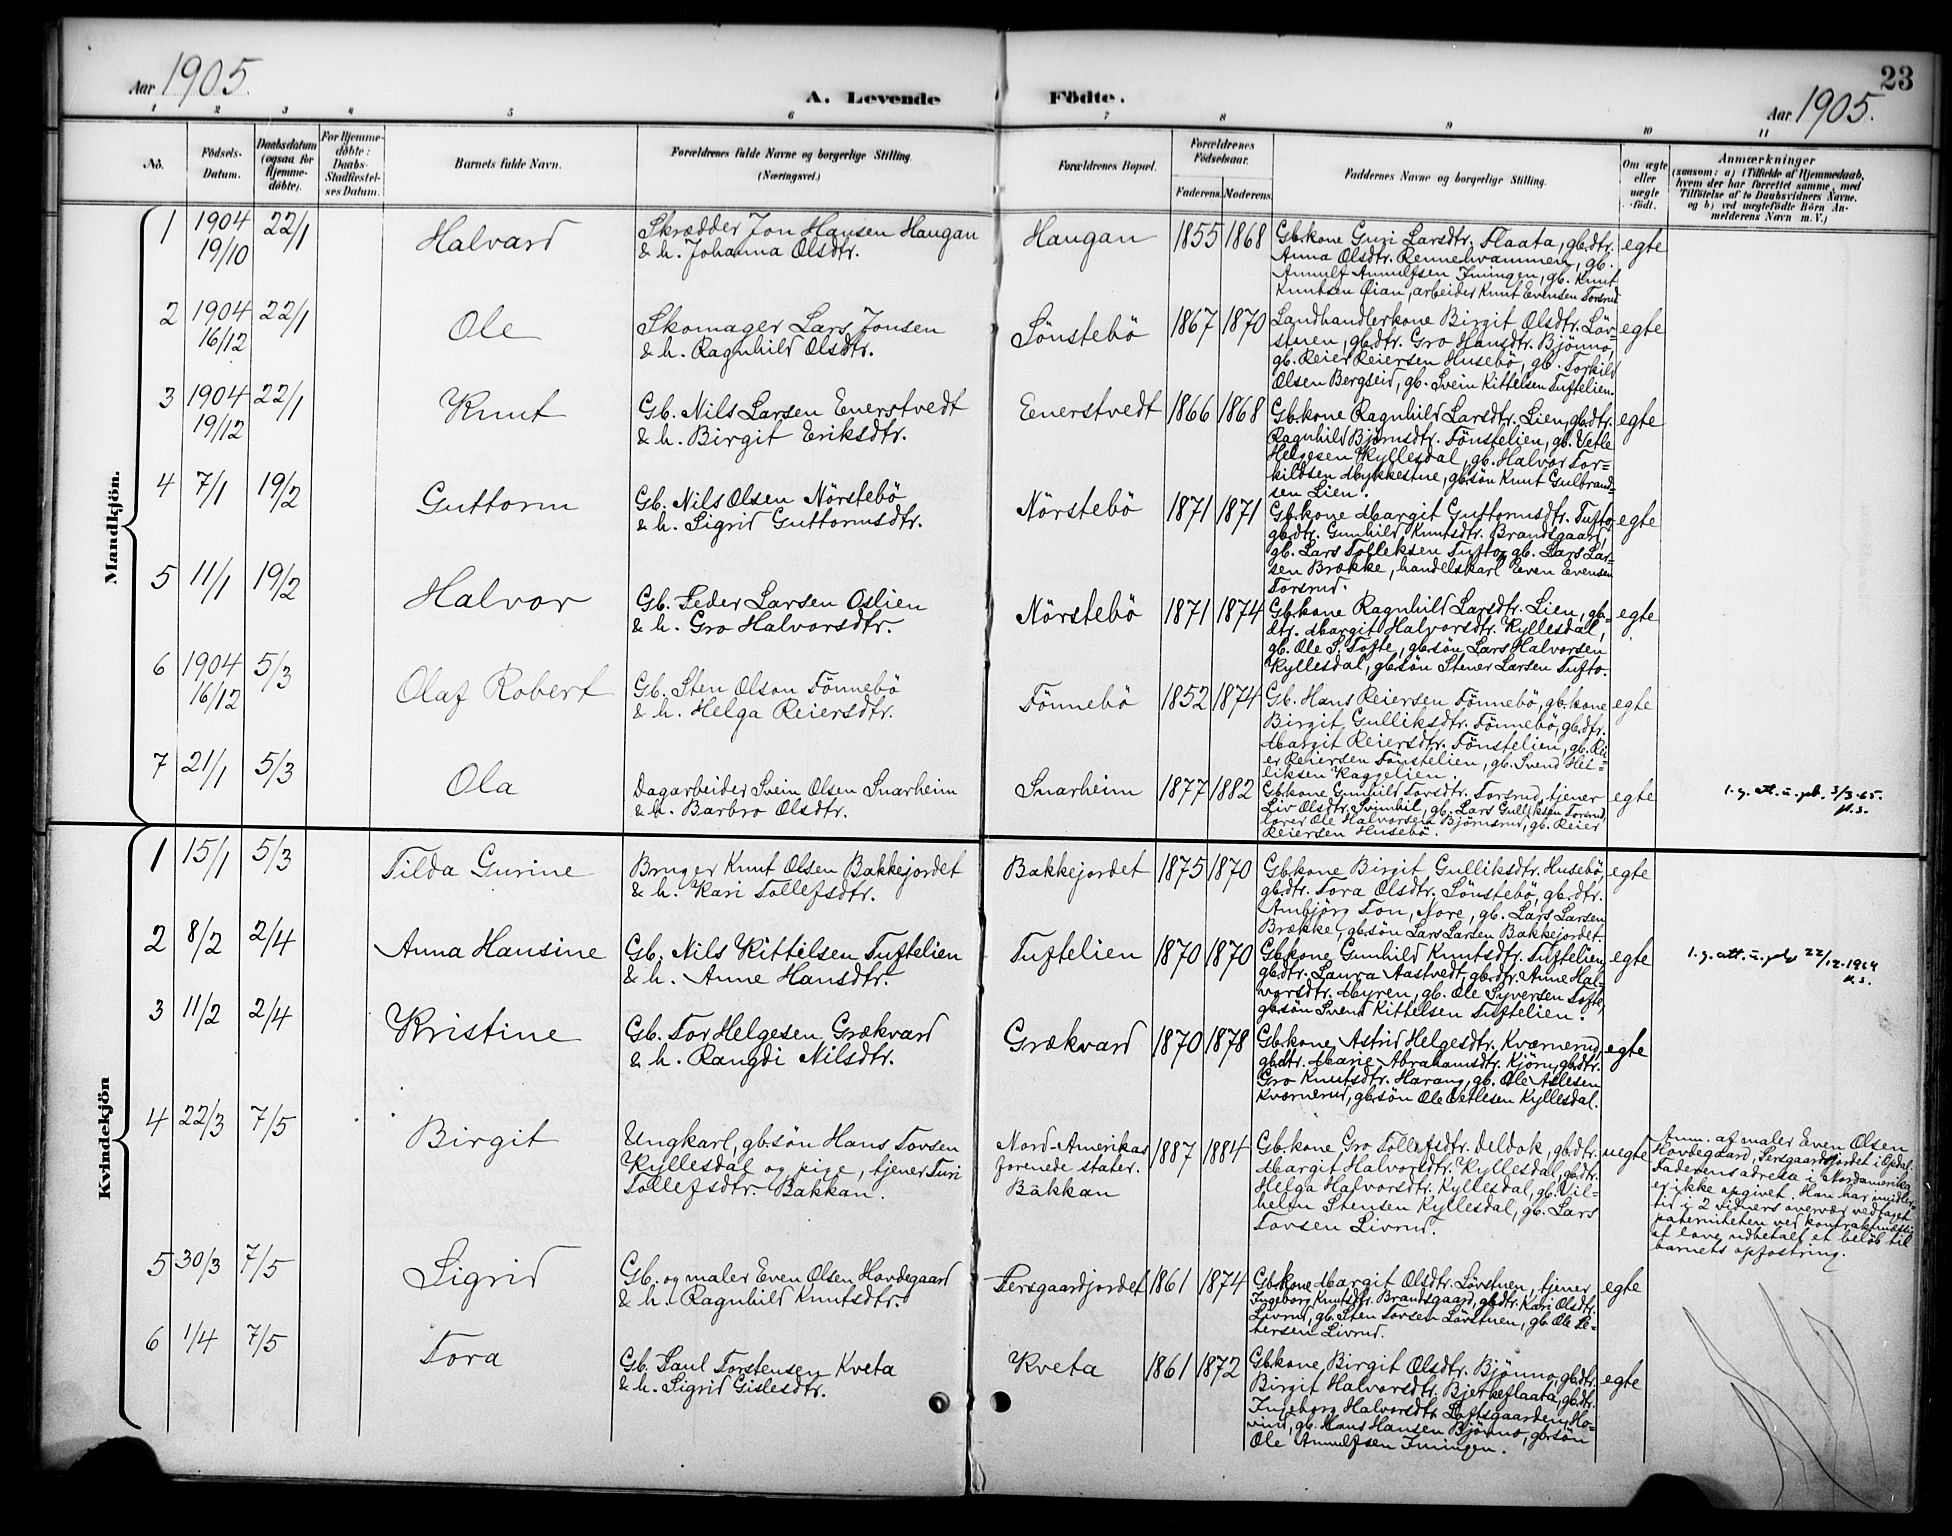 23
Aar 1905. A. Levende Födte. Aar 1905.
1 2 3 4 5 6 7 8 9 10 11
No. Födsels-Datum. Daabsdatum (ogsaa for Hjemme-döbte). For Hjemme-döbte: Daabs-Stadfæstel-ses Datum. Barnets fulde Navn. Forældrenes fulde Navne og borgerlige Stilling. (Næringsvei.) Forældrenes Bopæl. Forældrenes Födselsaar. Faderens. Moderens. Faddernes Navne og borgerlige Stilling. Om ægte eller uægte födt. Anmærkninger
(saasom: a) i Tilfælde af Hjemmedaab,
hvem der har forrettet samme, med
Tilföielse af to Daabsvidners Navne.
og b) ved uægtefödte Börn An-
melderens Navn m. V.)
Mandkjön.
1 1904 19/10 22/1 Halvard
Skrædder Jon Hansen Haugan
& h. Johanna Olsdtr.
Haugan 1855 1868
Gb.kone Guri Larsdtr. Flaata, gb.dtr.
Anna Olsdtr. Rennehvammen, gb.
Annulf Annulfsen Imingen, gb. Knut
Knutsen Öian, arbeider Knut Evensen Torsrud
egte
2 1904 16/12 22/1 Ole
Skomager Lars Jonsen
& h. Ragnhild Olsdtr.
Sönstebö 1867 1870
Landhandlerkone Birgit Olsdtr. Löv-
stuen, gb.dtr. Gro Hansdtr. Bjönno,
gb. Reier Reiersen Husebö, gb. Torkild
Olsen Bergseid, gb. Svein Kittelsen Tuftelien.
egte
3 1904 19/12 22/1 Knut
Gb. Nils Larsen Enerstvedt
& h. Birgit Eriksdtr.
Enerstvedt 1866 1868
Gb.kone Ragnhild Larsdtr. Lien, gb.dtr.
Ragnhild Björnsdtr. Fönstelien, gb. Vetle
Helgesen Kyllesdal, gb. Halvor Tor-
kildsen Mykkestue, gb.sön Knut Gulbrand-
sen Lien.
egte
4 7/1 19/2 Guttorm
Gb. Nils Olsen Nörstebö
& h. Sigrid Guttormsdtr.
Nörstebö 1871 1871
Gb.kone Margit Guttormsdtr. Tufto,
gb.dtr. Gunhild Knutsdtr. Brandsgaard,
gb. Lars Tolleksen Tufto, gb. Lars Lar-
sen Brække, handelskarl Even Evensen
Torsrud.
egte
5 11/1 19/2 Halvor
Gb. Peder Larsen Oslien
& h. Gro Halvorsdtr.
Nörstebö 1871 1874
Gb.kone Ragnhild Larsdtr. Lien, gb.-
dtr. Margit Halvorsdtr. Kyllesdal,
gb. Ole S. Tofte, gb.sön Lars Halvorsen
Kyllesdal, gb.sön Stener Larsen Tufto.
egte
6 1904 16/12 5/3 Olaf Robert
Gb. Sten Olson Fönnebö
& h. Helga Reiersdtr.
Fönnebö 1852 1874
Gb. Hans Reiersen Fönnebö, gb.kone
Birgit Gulliksdtr. Fönnebö, gb.dtr.
Margit Reiersdtr. Fönstelien, gb. Rei-
er Reiersen Fönstelien, gb. Svend Hel-
liksen Kaggelien.
egte
7 21/1 5/3 Ola
Dagarbeider Svein Olsen Snarheim
& h. Barbro Olsdtr.
Snarheim 1877 1882
Gb.kone Gunhild Torsdtr. Torsrud, tjener
Liv Olsdtr. Svinhil, gb. Lars Gulliksen Torsrud,
lærer Ole Halvorsen Björnsrud, gb. Reier
Reiersen Husebö.
egte
1. g. att. u. pb. 3/3.65.
Kvindekjön
1 15/1 5/3 Tilda Gurine
Bruger Knut Olsen Bakkejordet
& h. Kari Tollefsdtr.
Bakkejordet 1875 1870
Gb.kone Birgit Gulliksdtr. Husebö,
gb.dtr. Tora Olsdtr. Sönstebö, gb.dtr.
Ambjörg Ton, Nore, gb. Lars Larsen
Brække, gb.sön Lars Larsen Bakkejordet.
egte
2 8/2 2/4 Anna Hansine
Gb. Nils Kittilsen Tuftelien
& h. Anne Hansdtr.
Tuftelien 1870 1870
Gb.kone Gunhild Knutsdtr. Tuftelien,
gb.dtr. Laura Aastvedt, gb.dtr. Anne Hal-
vorsdtr. Myren, gb. Ole Syversen Tofte,
gb.sön Svend Kittelsen Tuftelien.
egte
1. g. att. u. pb. 22/12.1964
3 11/2 2/4 Kristine
Gb. Tor Helgesen Grækvard
& h. Rangdi Nilsdtr.
Grækvard 1870 1878
Gb.kone Astrid Helgesdtr. Kværnerud,
gb.dtr. Marie Abrahamsdtr. Kjörn, gb.dtr.
Gro Knutsdtr. Harang, gb. Ole Aslesen
Kværnerud, gb.sön Ole Vetlesen Kyllesdal.
egte
4 22/3 7/5 Birgit
Ungkarl, gb.sön Hans Tovsen
Kyllesdal og pige, tjener Turi
Tollefsdtr. Bakkan.
Nord-Amerikas
forenede stater.
Bakkan
1887 1884
Gb.kone Gro Tollefsdtr. Deldok, gb.dtr.
Margit Halvorsdtr. Kyllesdal, gb.dtr.
Helga Halvorsdtr. Kyllesdal, gb. Vil-
helm Stensen Kyllesdal, gb. Lars
Tovsen Livrud.
uegte
Anm. af maler Even Olsen
Hovdegaard, Persgaardjordet i Opdal.
Faderens adresse i Nordamerika
er ikke opgivet. Han har imidler-
tid i 2 vidners overvær vedtaget
paterniteten ved kontraktmæssig
at love udbetalt et belöb til
barnets opfostring.
5 30/3 7/5 Sigrid
Gb. og maler Even Olsen Hovdegaard
& h. Ragnhild Knutsdtr.
Persgaardjordet 1861 1874
Gb.kone Margit Olsdtr. Lövstuen, tjener
Ingeborg Knutsdtr. Brandsgaard, gb.dtr. Kari Olsdtr.
Livrud, gb. Sten Tovsen Lövstuen, gb. Ole Pe-
tersen Livrud.
egte
6 1/4 7/5 Tora
Gb. Paul Torstensen Kveta
& h. Sigrid Gislesdtr.
Kveta 1861 1872
Gb.kone Birgit Olsdtr. Bjönno, gb.dtr.
Birgit Halvorsdtr. Bjerkeflaata, gb.dtr.
Ingeborg Halvorsdtr. Loftsgaarden, Ho-
vind, gb. Hans Hansen Bjönno, gb.sön
Ole Annulfsen Imingen.
egte